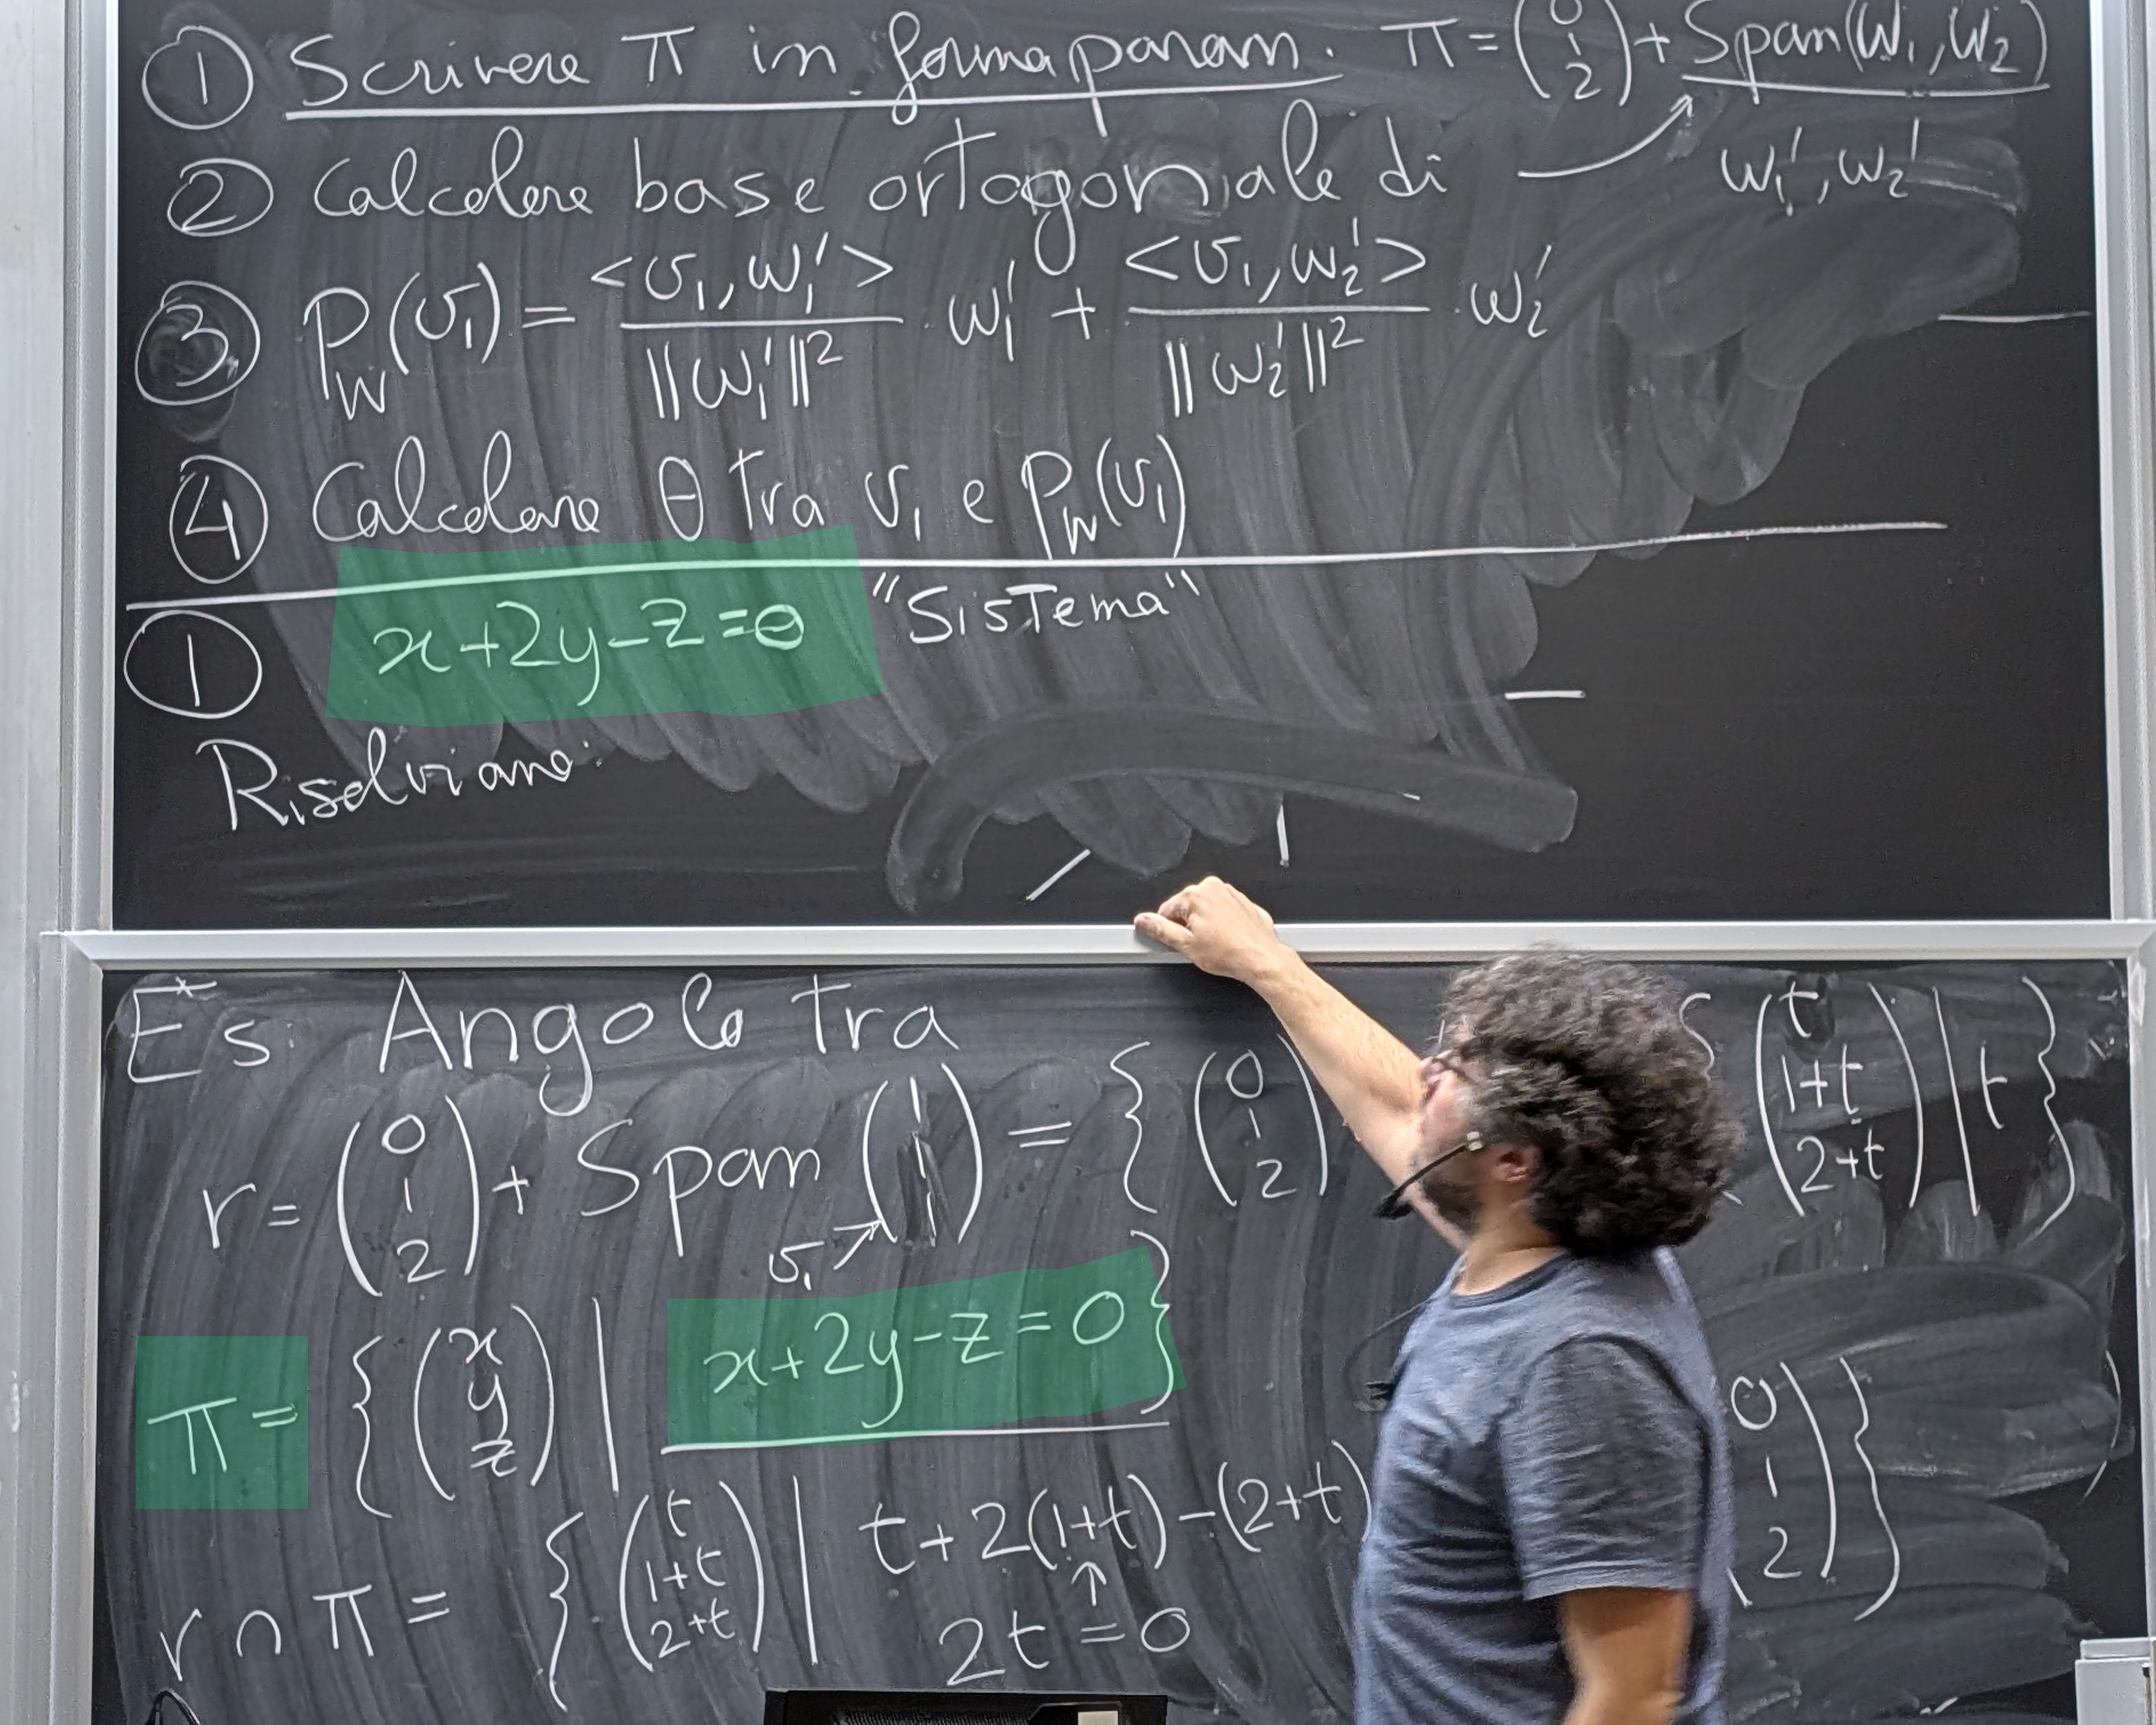 ① Scrivere π in forma param. π = (0 1 2) + Span(w₁, w₂)
② Calcolare base ortogonale di → w₁', w₂'
③ P_W(v₁) = <v₁, w₁'> / ||w₁'||² · w₁' + <v₁, w₂'> / ||w₂'||² · w₂'
④ Calcolare θ tra v₁ e P_W(v₁)
① x+2y-z=0 "Sistema"
Risolviamo:
Es. Angolo tra
r = (0 1 2) + Span (1 1 1) = { (0 1 2) (t 1+t 2+t) | t }
v₁
π = { (x y z) | x+2y-z=0 }
r ∩ π = { (t 1+t 2+t) | t+2(1+t)-(2+t) (0 1 2) }
2t=0